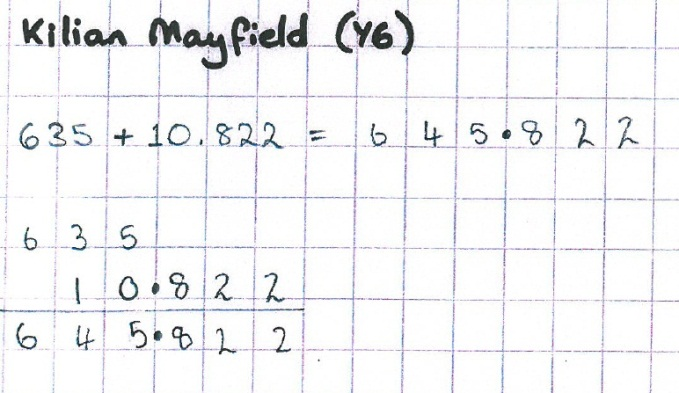 Kilian Mayfield (Y6)
635 + 10.822 = 645.822
635
10.822
645.822